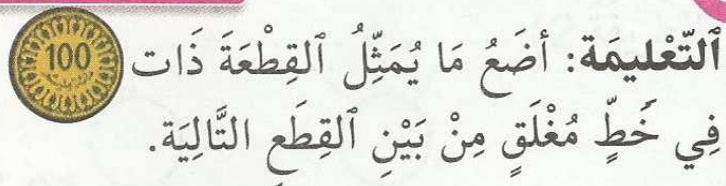 ٱلتَّعْلِيمَة: أَضَعُ مَا يُمَثِّلُ ٱلقِطْعَةَ ذَات 100
فِي خَطٍّ مُغْلَقٍ مِنْ بَيْنِ ٱلقِطَعِ التَّالِيَة.